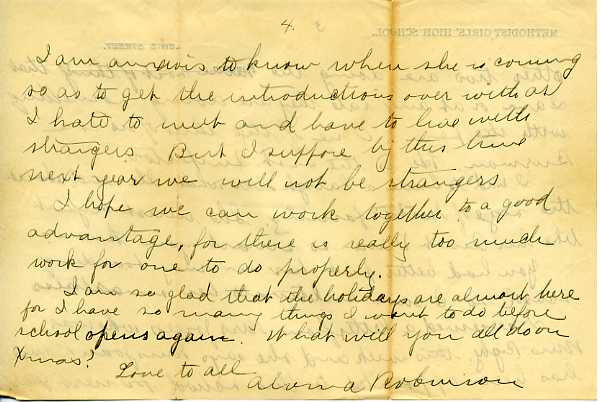 4.
I am anxois to know when she is coming
so as to get the introductions over with as
I hate to meet and have to live with
strangers. But I suppose by this time
next year we will not be strangers
I hope we can work together to a good
advantage, for there is really too much
work for one to do properly.
I am so glad that the holidays are almost here
for I have so many things I want to do before
school opens again. What will you all do on
Xmas?
Love to all
Alvina Robinson
METHODIST GIRLS' HIGH SCHOOL.